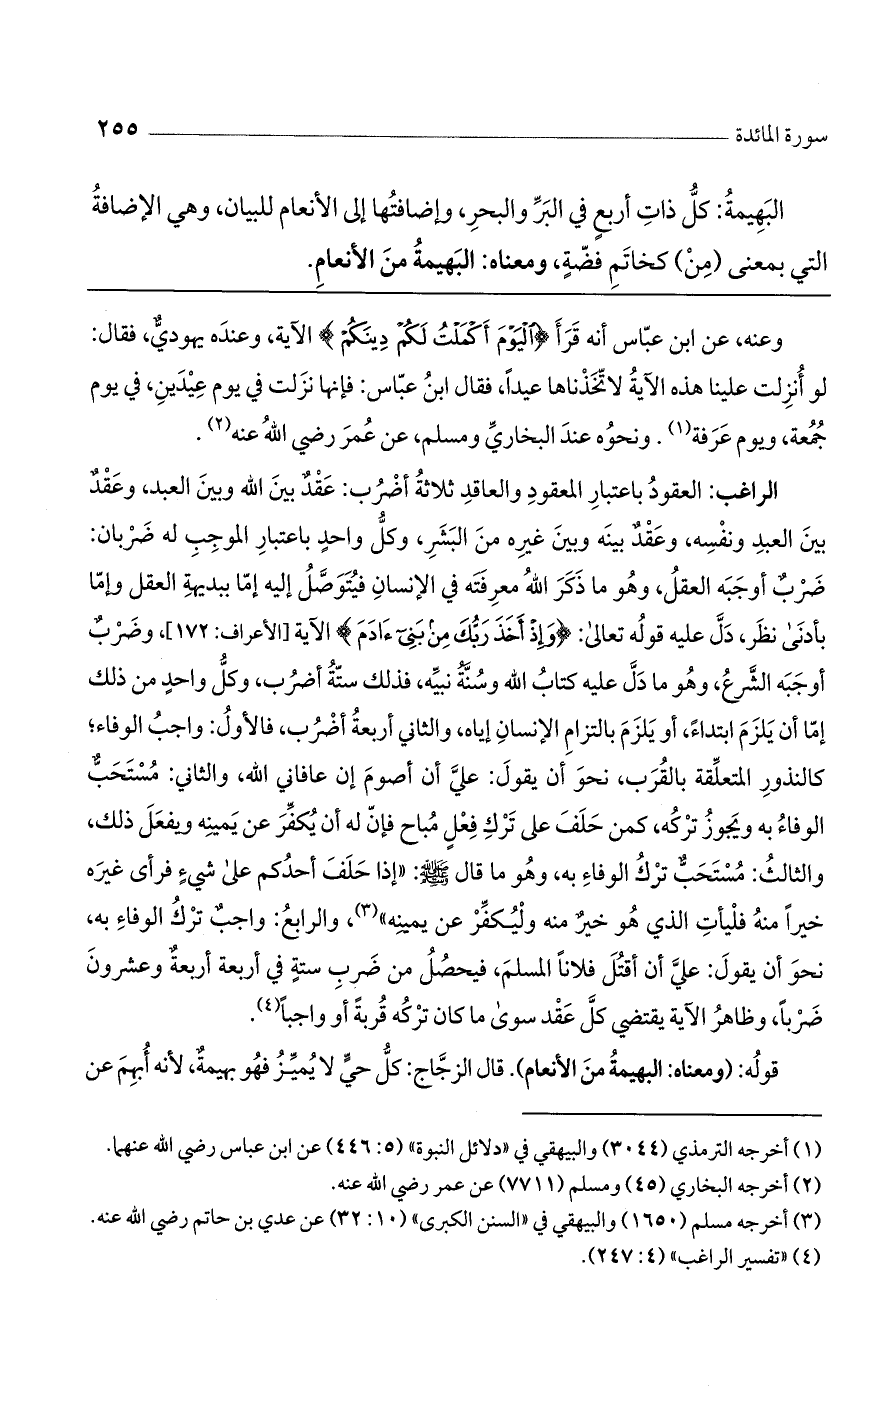 سورة المائدة ٢٥٥
البَهِيمةُ: كلُّ ذاتِ أربعٍ في البَرِّ والبحرِ، وإضافتُها إلى الأنعام للبيان، وهي الإضافةُ
التي بمعنى (مِنْ) كخاتَمِ فضّةٍ، ومعناه: البَهيمةُ منَ الأنعامِ.
وعنه، عن ابن عبّاس أنه قَرَأَ ﴿ٱلْيَوْمَ أَكْمَلْتُ لَكُمْ دِينَكُمْ﴾ الآية، وعندَه يهوديٌّ، فقال:
لو أُنزِلت علينا هذه الآيةُ لاتّخَذْناها عيداً، فقال ابنُ عبّاس: فإنها نزَلت في يوم عِيْدَينِ، في يوم
جُمُعة، ويوم عَرَفة(١) . ونحوُه عندَ البخاريِّ ومسلم، عن عُمرَ رضي اللهُ عنه(٢) .
الراغب: العقودُ باعتبارِ المعقودِ والعاقدِ ثلاثةُ أضْرُب: عَقْدٌ بينَ الله وبينَ العبد، وعَقْدٌ
بينَ العبدِ ونفْسِه، وعَقْدٌ بينَه وبينَ غيرِه منَ البَشَرِ، وكلُّ واحدٍ باعتبارِ الموجِبِ له ضَرْبان:
ضَرْبٌ أوجَبَه العقلُ، وهُو ما ذَكَرَ اللهُ معرفتَه في الإنسانِ فيُتَوَصَّلُ إليه إمّا ببديهةِ العقل وإمّا
بأدنَىٰ نظَر، دَلَّ عليه قولُه تعالىٰ: ﴿وَإِذْ أَخَذَ رَبُّكَ مِنۢ بَنِىٓ ءَادَمَ﴾ الآية [الأعراف: ١٧٢]، وضَرْبٌ
أوجَبَه الشَّرعُ، وهُو ما دَلَّ عليه كتابُ الله وسُنَّةُ نبيِّه، فذلك ستّةُ أضرُب، وكلُّ واحدٍ من ذلك
إمّا أن يَلزَمَ ابتداءً، أو يَلزَمَ بالتزامِ الإنسانِ إياه، والثاني أربعةُ أضْرُب، فالأولُ: واجبُ الوفاء؛
كالنذورِ المتعلِّقة بالقُرَب، نحوَ أن يقولَ: عليَّ أن أصومَ إن عافاني الله، والثاني: مُسْتَحَبٌّ
الوفاءُ به ويجوزُ تركُه، كمن حَلَفَ على تَرْكِ فِعْلٍ مُباح فإنّ له أن يُكفِّرَ عن يَمينِه ويفعَلَ ذلك،
والثالثُ: مُسْتَحَبٌّ ترْكُ الوفاءِ به، وهُو ما قال ﷺ: «إذا حَلَفَ أحدُكم علىٰ شيءٍ فرأى غيرَه
خيراً منهُ فلْيأتِ الذي هُو خيرٌ منه ولْيُكفِّرْ عن يمينِه»(٣)، والرابعُ: واجبٌ ترْكُ الوفاءِ به،
نحوَ أن يقولَ: عليَّ أن أقتُلَ فلاناً المسلمَ، فيحصُلُ من ضَربِ ستةٍ في أربعة أربعةٌ وعشرونَ
ضَرْباً، وظاهرُ الآية يقتضي كلَّ عَقْد سوىٰ ما كان ترْكُه قُربةً أو واجباً(٤).
قولُه: (ومعناه: البهيمةُ منَ الأنعام). قال الزجَّاج: كلُّ حيٍّ لا يُميِّـزُ فهُو بهيمةٌ، لأنه أُبهِمَ عن
(١) أخرجه الترمذي (٣٠٤٤) والبيهقي في «دلائل النبوة» (٥: ٤٤٦) عن ابن عباس رضي الله عنهما.
(٢) أخرجه البخاري (٤٥) ومسلم (٧٧١١) عن عمر رضي الله عنه.
(٣) أخرجه مسلم (١٦٥٠) والبيهقي في «السنن الكبرى» (١٠: ٣٢) عن عدي بن حاتم رضي الله عنه.
(٤) «تفسير الراغب» (٤: ٢٤٧).